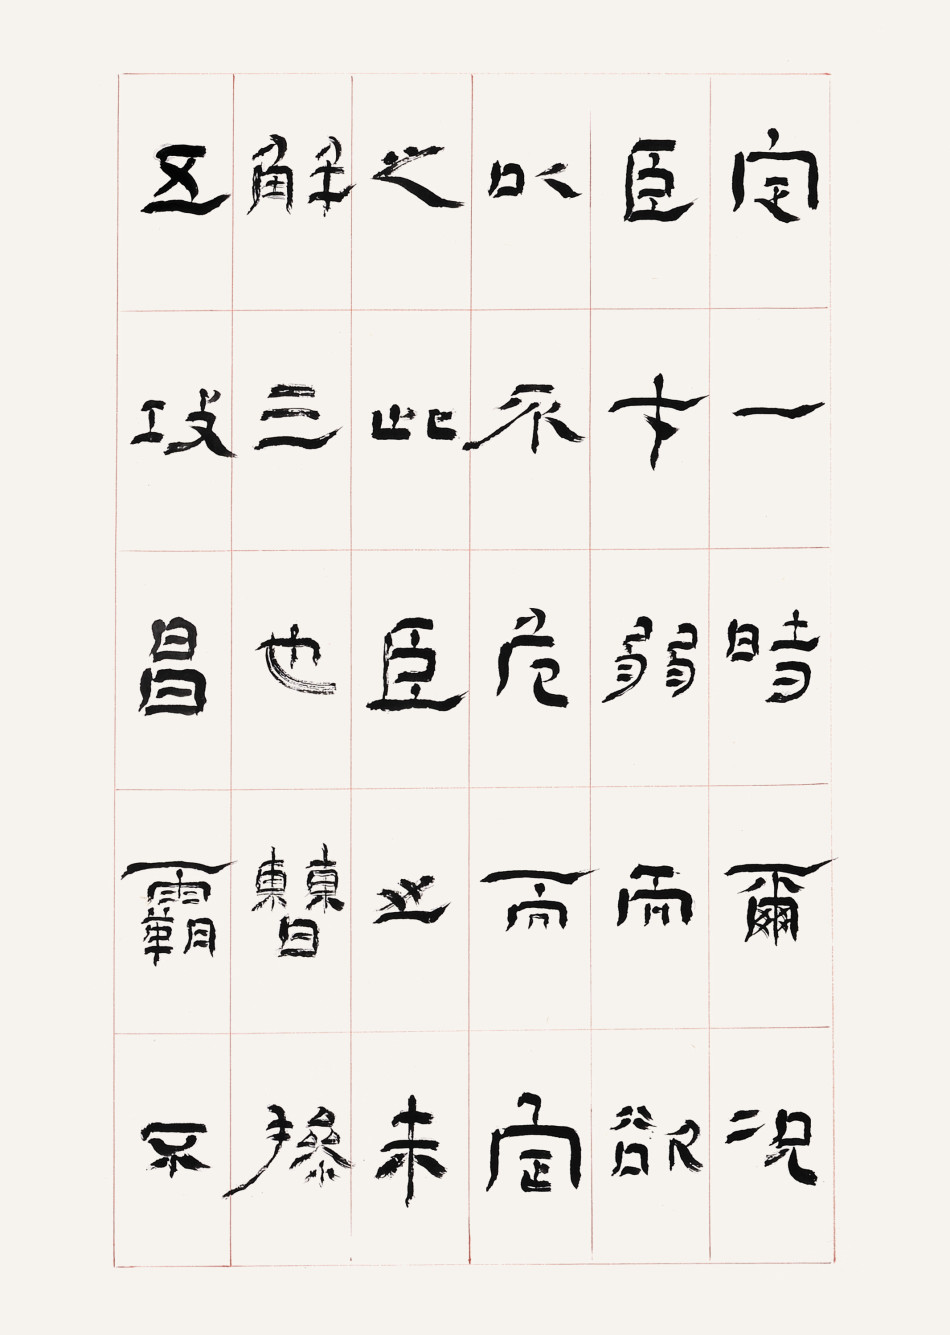 定一時爾况
臣才弱而欲
以不危而定
之此臣之未
解三也曹操
五攻昌霸不